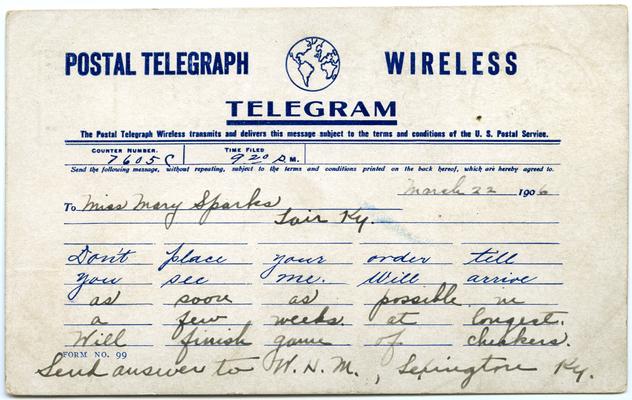 POSTAL TELEGRAPH WIRELESS
TELEGRAM
The Postal Telegraph Wireless transmits and delivers this message subject to the terms and conditions of the U. S. Postal Service.
COUNTER NUMBER. TIME FILED
7605C 9 20 P.M.
Send the following message, without repeating, subject to the terms and conditions printed on the back hereof, which are hereby agreed to.
March 22 1906
To Miss Mary Sparks
Lair Ky.
Don't place your order till
you see me. Will arrive
as soon as possible in
a few weeks. at longest.
Will finish game of checkers.
FORM NO. 99
Send answer to W. N. M., Lexington Ky.